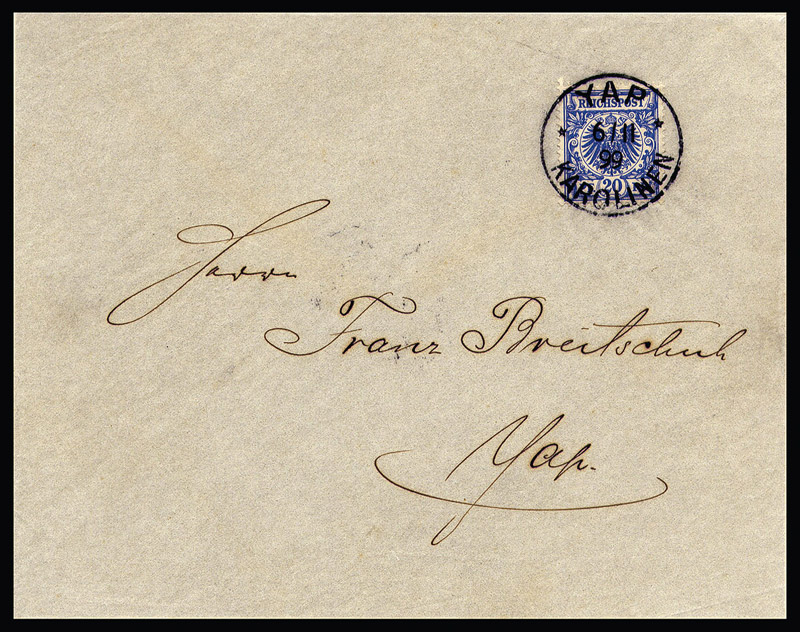 YAP
REICHSPOST
6/11
99
20
KAROLINEN
Herrn
Franz Breitschuh
Yap.